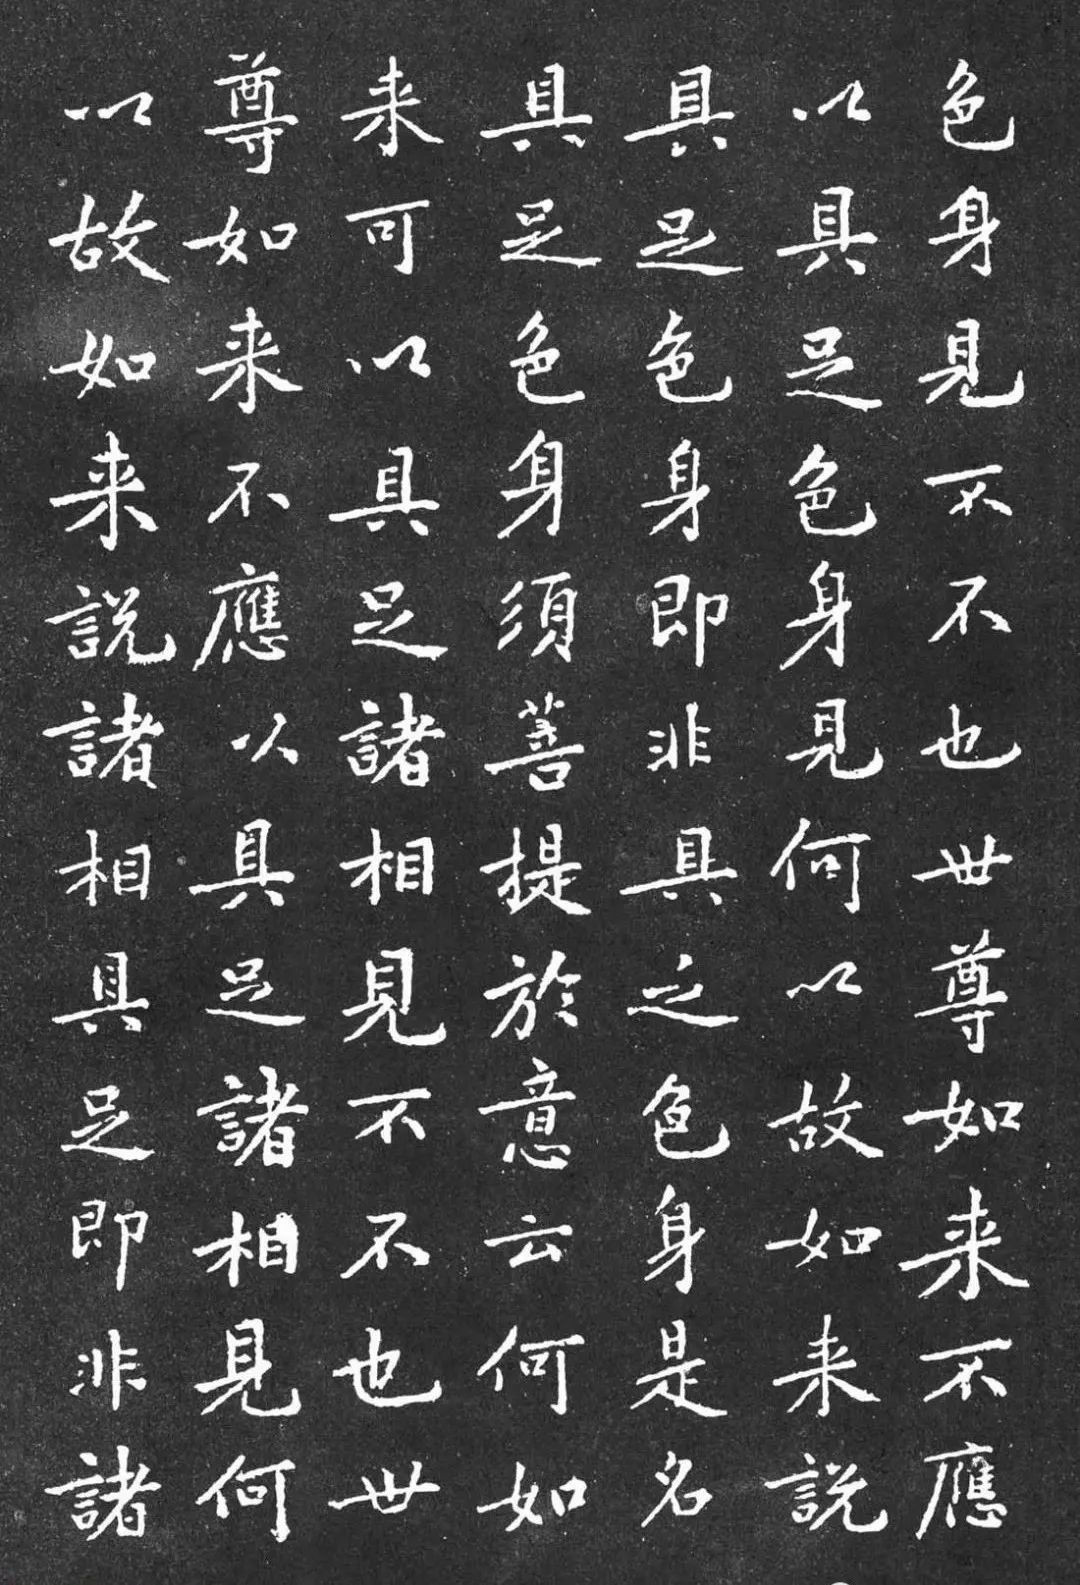 色身見不不也世尊如来不應
以具足色身見何以故如来説
具足色身即非具之色身是名
具足色身須菩提於意云何如
来可以具足諸相見不不也世
尊如来不應以具足諸相見何
以故如来説諸相具足即非諸